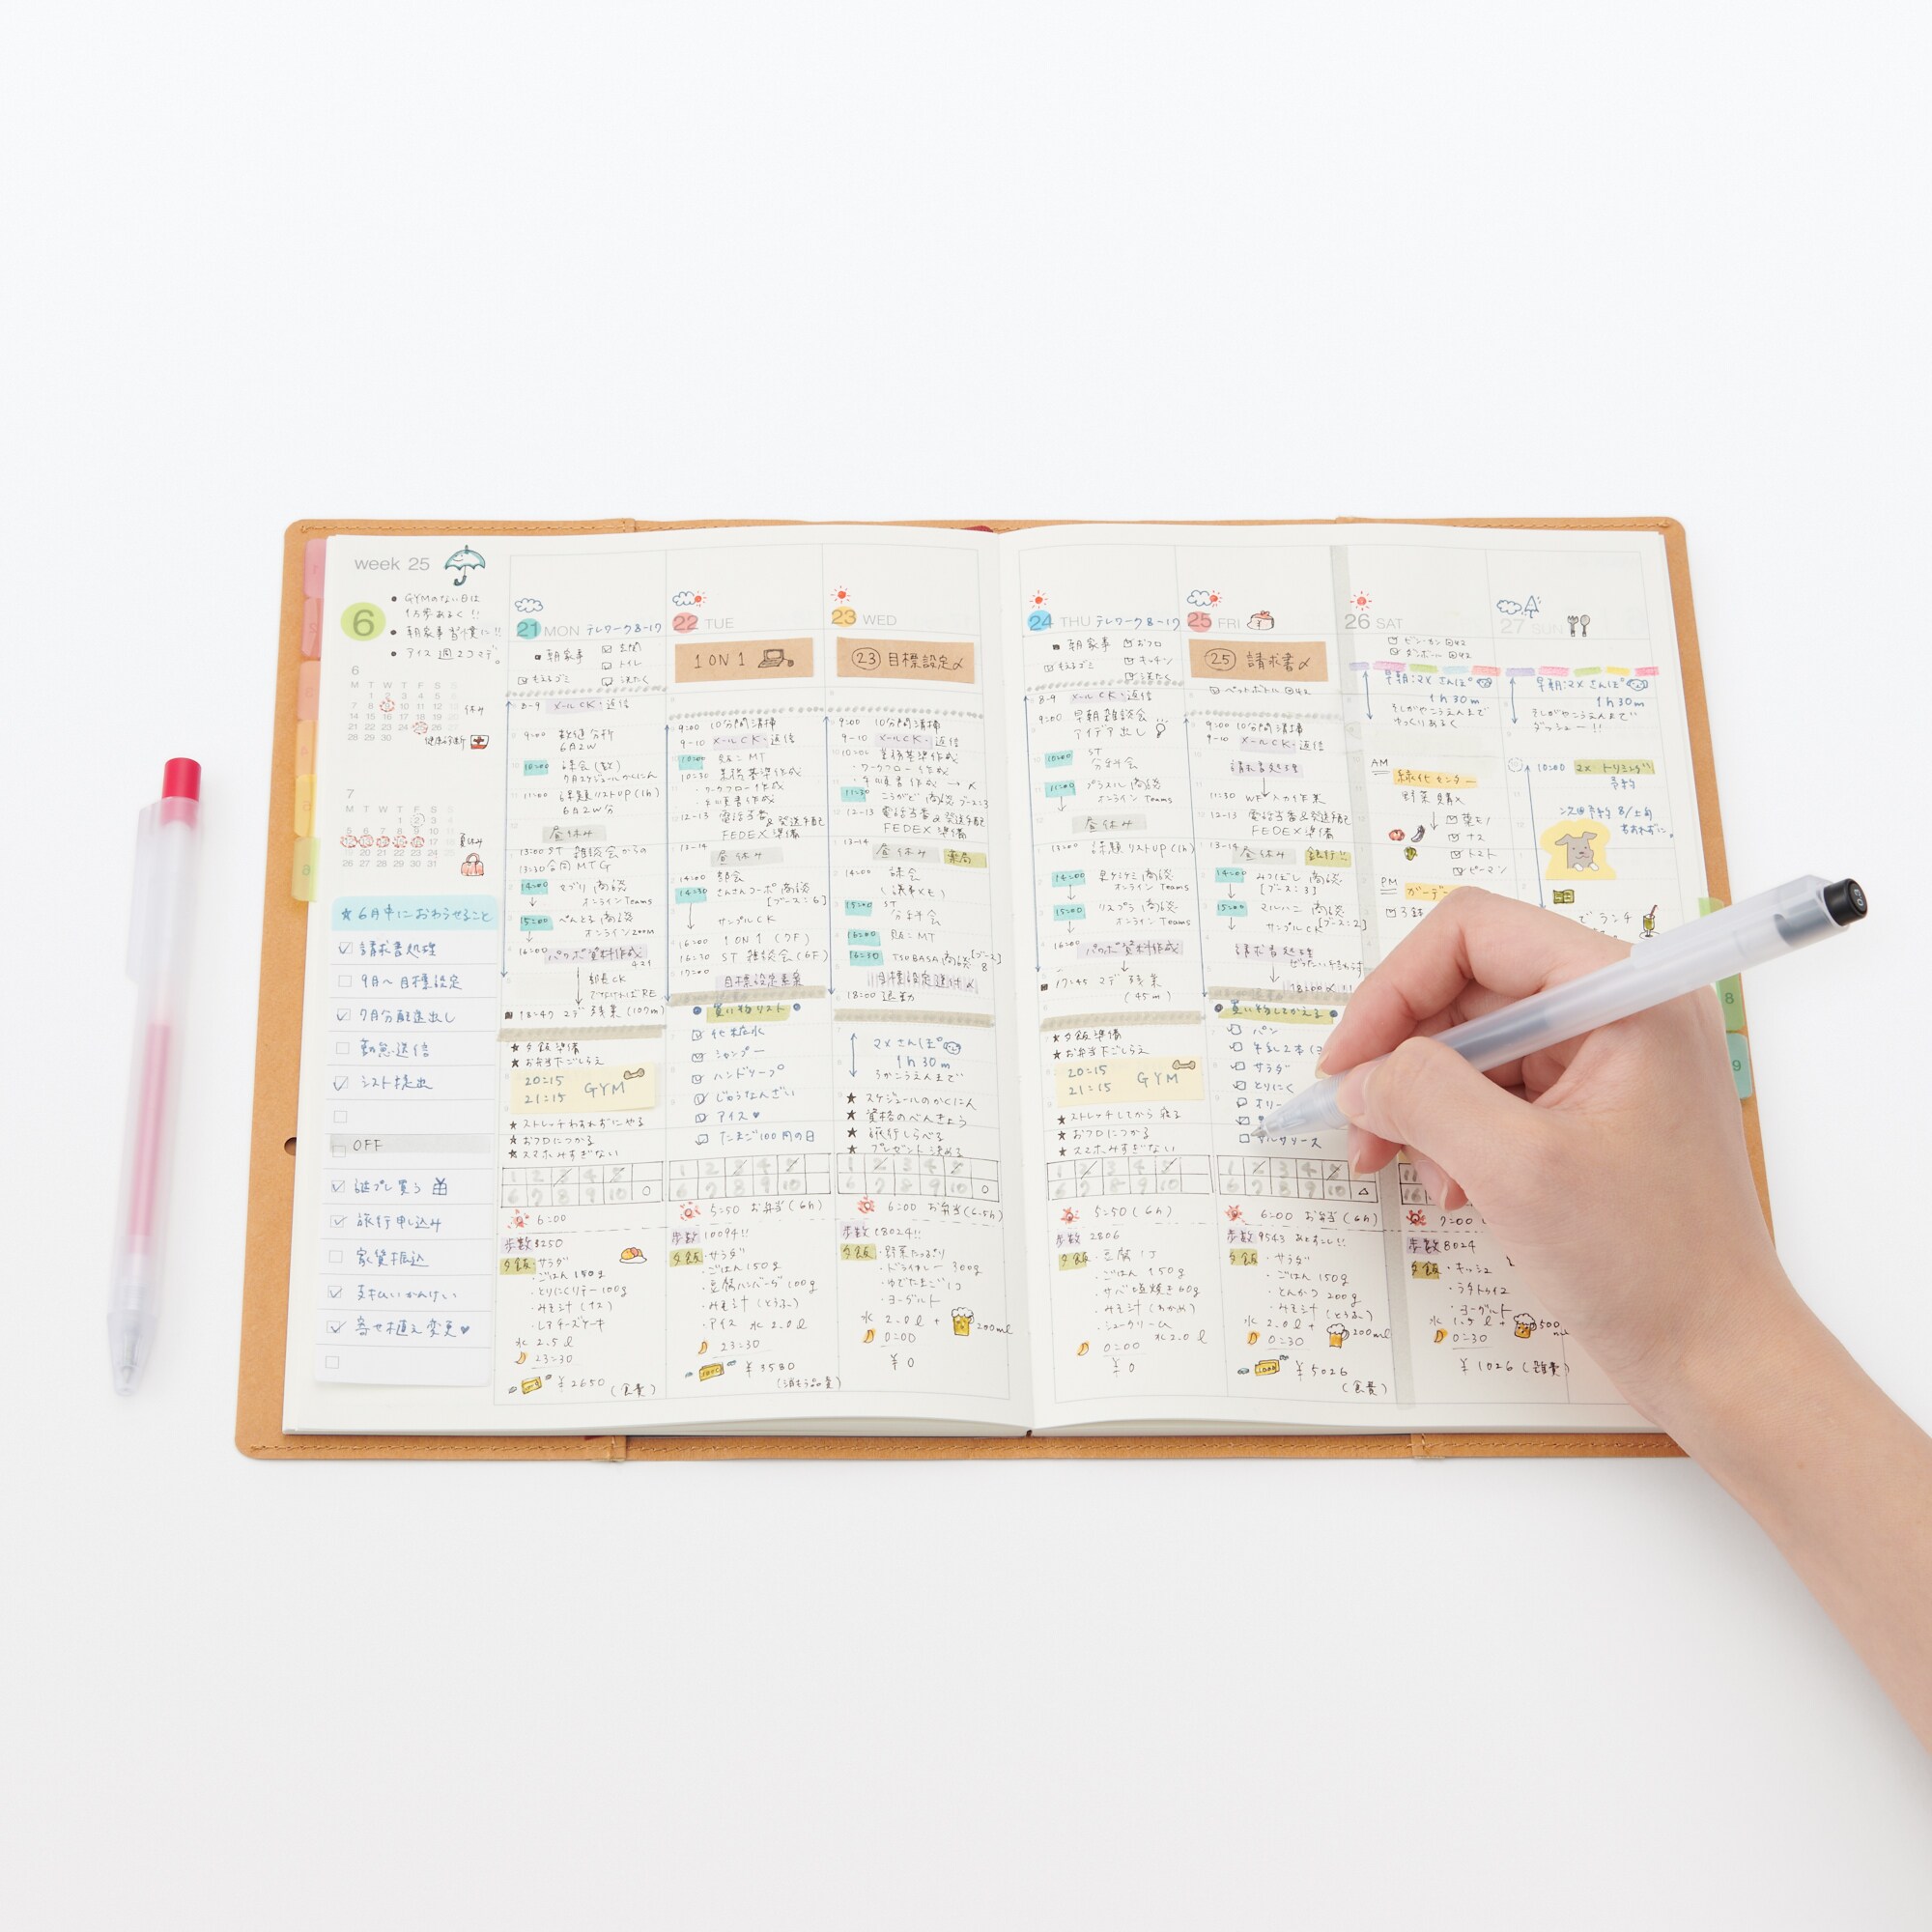 week 25
6
GYMのない日は
1万歩あるく!!
朝家事習慣に!!
アイス週2コマデ。
6
M T W T F S S
1 2 3 4 5 6
7 8 9 10 11 12 13
14 15 16 17 18 19 20
21 22 23 24 25 26 27
28 29 30
休み
健康診断
7
M T W T F S S
1 2 3 4
5 6 7 8 9 10 11
17 18
19 20 21 22 23 24 25
26 27 28 29 30 31
夏休み
★6月中におわらせること
請求書処理
9月〜目標設定
7月分配進出し
勤怠送信
シフト提出
OFF
誕プレ買う
旅行申し込み
家賃振込
支払いかんけい
寄せ植え変更♥
21 MON テレワーク8-17
朝家事
玄関
トイレ
もえるゴミ
洗たく
8-9 メールCK・返信
9:00 数値分析
6月2W
10:00 課会(数)
7月スケジュールかくにん
11:00 課題リストUP(1h)
6月2W分
昼休み
13:00 ST 雑談会からの
13:30 合同MTG
14:00 マブリ商談
オンラインTeams
15:00 ぺんてる商談
オンラインZoom
16:00 パワポ資料作成
部長CK
でなければRE
18:47 マデ残業(107m)
★夕飯準備
★お弁当下ごしらえ
20:15
21:15 GYM
★ストレッチわすれずにやる
★おフロにつかる
★スマホみすぎない
1 2 3 4 5
6 7 8 9 10 ○
6:00
歩数3250
夕飯・サラダ
・ごはん150g
・とりにくソテー100g
・みそ汁(ナス)
・レアチーズケーキ
水2.5l
23:30
¥2650(食費)
22 TUE
1 ON 1
9:00 10分間清掃
9-10 メールCK・返信
10:00 MT
10:30 業務基準作成
・ワークフロー作成
・手順書作成
12-13 電話当番&発送手配
FEDEX準備
13-14 昼休み
14:00 部会
14:30 さんさんコーポ商談
[ブース:6]
サンプルCK
16:00 1 ON 1 (7F)
16:30 ST 雑談会(6F)
17:00
目標設定
買い物リスト
化粧水
シャンプー
ハンドソープ
じゅうなんざい
アイス♥
たまご100円の日
1 2 3 4 5
6 7 8 9 10
5:50 お弁当(6h)
歩数10094!!
夕飯・サラダ
・ごはん150g
・豆腐ハンバーグ100g
・みそ汁(とうふ)
・アイス 水2.0l
23:30
¥3580
(消もう品費)
23 WED
23 目標設定〆
9:00 10分間清掃
9-10 メールCK・返信
10:00 業務基準作成
・ワークフロー作成
・手順書作成→〆
11:30 こうがど商談 ブース:3
12-13 電話当番&発送手配
FEDEX準備
13-14 昼休み 薬局
14:00 課会
(議事メモ)
15:00 ST
分科会
16:00 MT
16:30 TSUBASA商談[ブース:8]
目標設定送付〆
18:00 退勤
マメさんぽ
1h30m
★スケジュールのかくにん
★資格のべんきょう
★旅行しらべる
★プレゼント決める
1 2 3 4 5
6 7 8 9 10 ○
6:00 お弁当(6.5h)
歩数18024!!
夕飯・野菜たっぷり
・ドライカレー300g
・ゆでたまご1コ
・ヨーグルト
水2.0l+ 200ml
0:00
¥0
24 THU テレワーク8-17
朝家事
おフロ
もえるゴミ
キッチン
洗たく
8-9 メールCK・返信
9:00 早朝雑談会...
アイデア出し
10:00 ST
分科会
11:00 プラスル商談
オンラインTeams
昼休み
13:00 課題リストUP(1h)
14:00 商談
オンラインTeams
15:00 リスプラ商談
オンラインTeams
16:00 パワポ資料作成
17:45 マデ残業
(45m)
★夕飯準備
★お弁当下ごしらえ
20:15
21:15 GYM
★ストレッチしてから寝る
★おフロにつかる
★スマホみすぎない
1 2 3 4 5
6 7 8 9 10
5:50(6h)
歩数2806
夕飯・豆腐1丁
・ごはん150g
・サバ塩焼き60g
・みそ汁(わかめ)
・シュークリーム
水2.0l
0:00
¥0
25 FRI
25 請求書〆
ペットボトル
9:00 10分間清掃
9-10 メールCK・返信
請求書処理
11:30 WF入力作業
12-13 電話当番&発送手配
FEDEX準備
13-14 昼休み 銀行!!
14:00 みつぼし商談
[ブース:3]
15:00 マルハニ商談
サンプルCK [ブース:2]
請求書処理
18:00〆!!
買い物してかえる
パン
牛乳2本
サラダ
とりにく
オリー
サルサソース
1 2 3 4 5
6 7 8 9 10 △
6:00 お弁当(6h)
歩数9543 あとすこし!!
夕飯・サラダ
・ごはん150g
・とんかつ200g
・みそ汁(とうふ)
水2.0l+ 200ml
0:30
¥5026
(食費)
26 SAT
ビン・カン
ダンボール
早朝:マメさんぽ
1h30m
そしがやこうえんまで
ゆっくりあるく
AM
緑化センター
野菜購入
葉モノ
ナス
トマト
ピーマン
PM
ガーデ
7:00
歩数8024
夕飯・キッシュ
・ラタトゥイユ
・ヨーグルト
水1.5l+ 500ml
0:30
¥1026(雑費)
27 SUN
早朝:マメさんぽ
1h30m
そしがやこうえんまで
ダッシュー!!
10:00 マメトリミング
予約
次回予約8/上旬
わすれずに。
でランチ
8
9